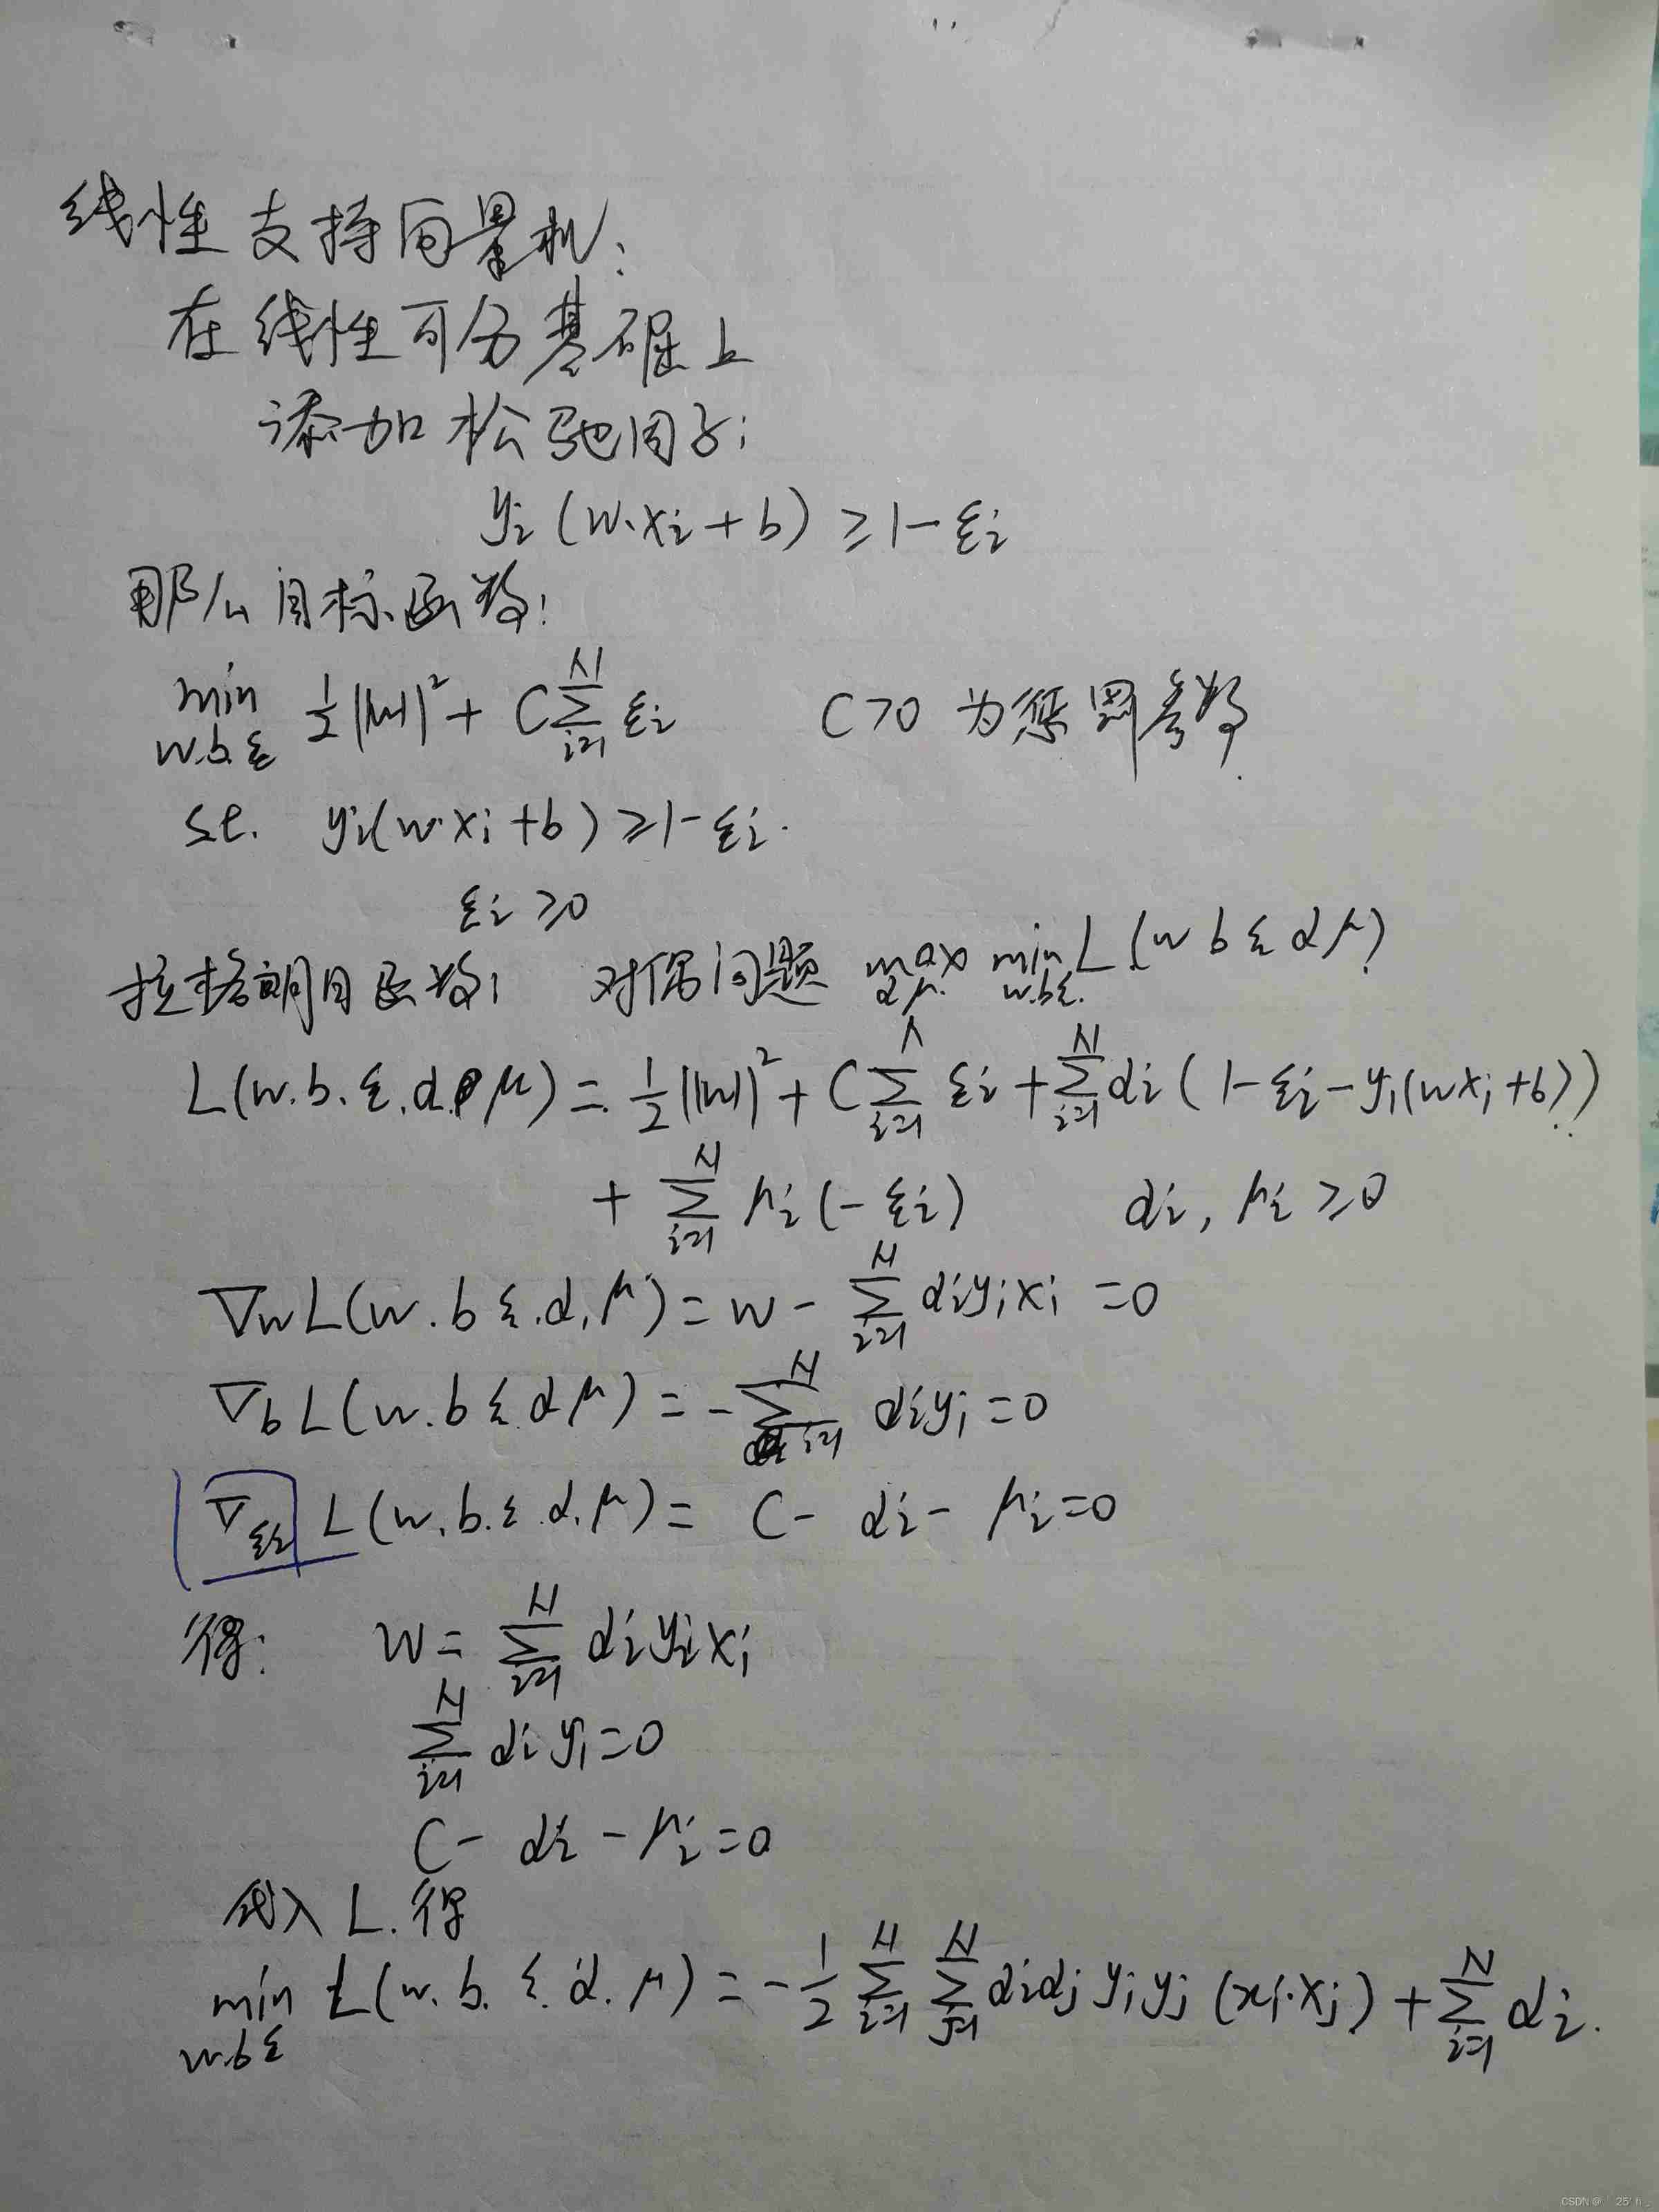 线性支持向量机:
在线性可分基础上
添加松弛因子:
yi (w·xi + b) ≥ 1 - εi
那么目标函数:
min w.b.ε 1/2 ||w||² + C ∑_{i=1}^{N} εi C>0 为惩罚参数.
s.t. yi(w·xi + b) ≥ 1 - εi.
εi ≥ 0
拉格朗日函数: 对偶问题 max α.μ. min w.b.ε. L(w b ε α μ)
L(w.b.ε.α.μ) = 1/2 ||w||² + C ∑_{i=1}^{N} εi + ∑_{i=1}^{N} αi (1 - εi - yi(wxi + b))
+ ∑_{i=1}^{N} μi (-εi) αi, μi ≥ 0
∇w L(w.b ε.α.μ) = w - ∑_{i=1}^{N} αi yi xi = 0
∇b L(w.b ε.α μ) = - ∑_{i=1}^{N} αi yi = 0
∇εi L(w.b.ε.α.μ) = C - αi - μi = 0
得: w = ∑_{i=1}^{N} αi yi xi
∑_{i=1}^{N} αi yi = 0
C - αi - μi = 0
代入 L. 得
min w.b ε L(w.b.ε.α.μ) = - 1/2 ∑_{i=1}^{N} ∑_{j=1}^{N} αi αj yi yj (xi·xj) + ∑_{i=1}^{N} αi.
CSDN @ 25' h